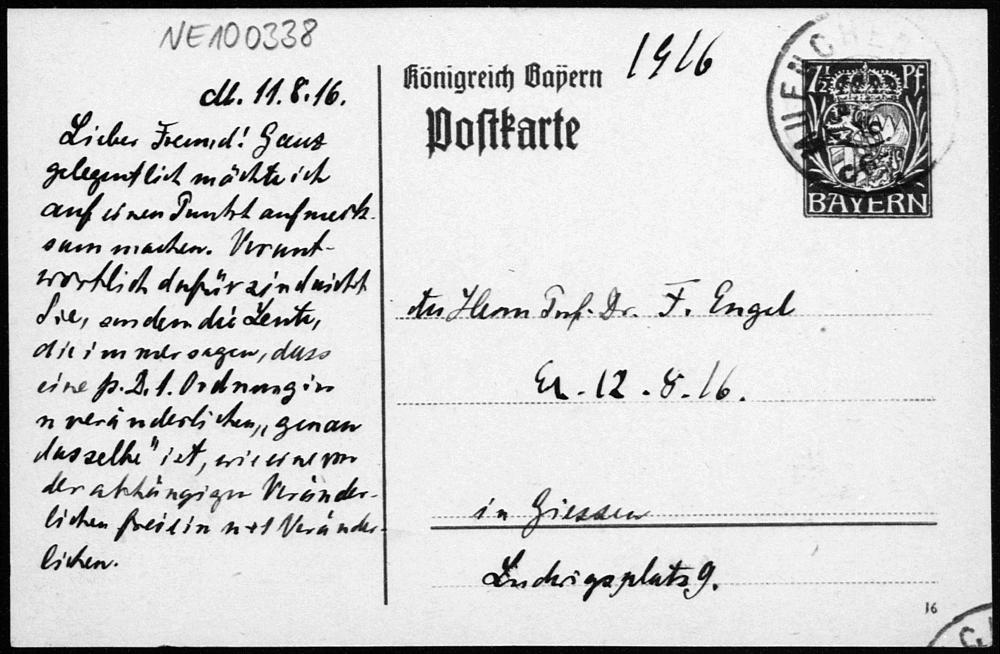 NE100338
M. 11.8.16.
Lieber Freund! Ganz
gelegentlich möchte ich
auf einen Punkt aufmerk-
sam machen. Verant-
wortlich dafür sind nicht
Sie, sondern die Leute,
die immer sagen, dass
eine p. D. 1. Ordnung in
n veränderlichen „genau
dasselbe" ist, wie eine von
der abhängigen Veränder-
lichen freie in n+1 Veränder-
lichen.
Königreich Bayern
1916
Postkarte
MUENCHEN
7½ Pf.
BAYERN
An Herrn Prof. Dr. F. Engel
Er. 12.8.16.
in Giessen
Ludwigsplatz 9.
16